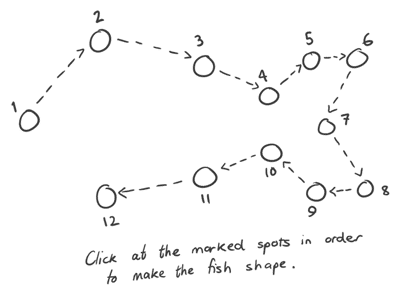 1
2
3
4
5
6
7
8
9
10
11
12
Click at the marked spots in order
to make the fish shape.